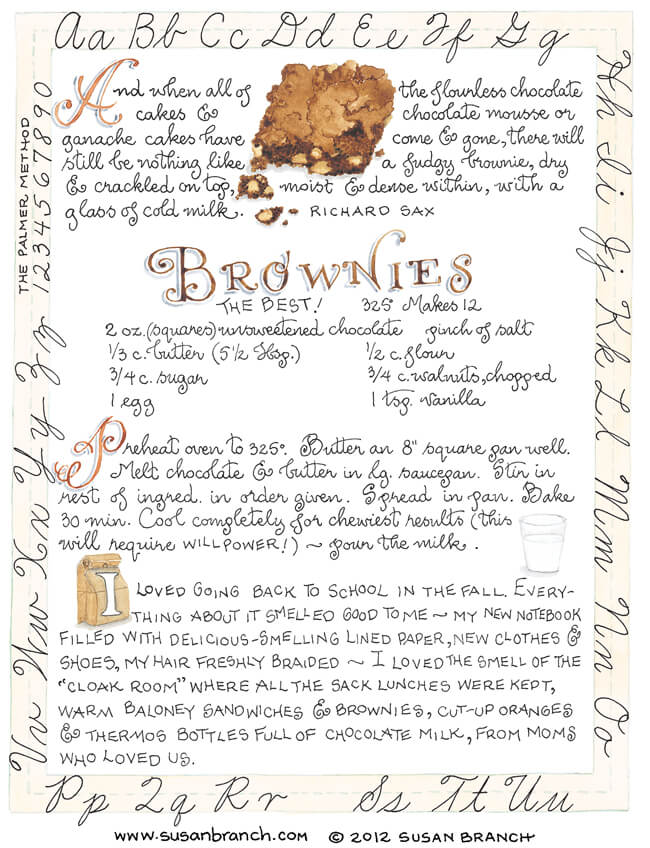 Aa Bb Cc Dd Ee Ff Gg
Hh Ii Jj Kk Ll Mm Nn Oo
Pp Qq Rr Ss Tt Uu
Vv Ww Xx Yy Zz
THE PALMER METHOD
1234567890
And when all of the flourless chocolate
cakes & chocolate mousse or
ganache cakes have come & gone, there will
still be nothing like a fudgy brownie, dry
& crackled on top, moist & dense within, with a
glass of cold milk. RICHARD SAX
BROWNIES
THE BEST! 325° Makes 12
2 oz. (squares) unsweetened chocolate pinch of salt
1/3 c. butter (5 1/2 Tbsp.) 1/2 c. flour
3/4 c. sugar 3/4 c. walnuts, chopped
1 egg 1 tsp. vanilla
Preheat oven to 325°. Butter an 8" square pan well.
Melt chocolate & butter in lg. saucepan. Stir in
rest of ingred. in order given. Spread in pan. Bake
30 min. Cool completely for chewiest results (this
will require WILLPOWER!) ~ pour the milk.
I LOVED GOING BACK TO SCHOOL IN THE FALL. EVERY-
THING ABOUT IT SMELLED GOOD TO ME ~ MY NEW NOTEBOOK
FILLED WITH DELICIOUS-SMELLING LINED PAPER, NEW CLOTHES &
SHOES, MY HAIR FRESHLY BRAIDED ~ I LOVED THE SMELL OF THE
"CLOAK ROOM" WHERE ALL THE SACK LUNCHES WERE KEPT,
WARM BALONEY SANDWICHES & BROWNIES, CUT-UP ORANGES
& THERMOS BOTTLES FULL OF CHOCOLATE MILK, FROM MOMS
WHO LOVED US.
www.susanbranch.com © 2012 SUSAN BRANCH